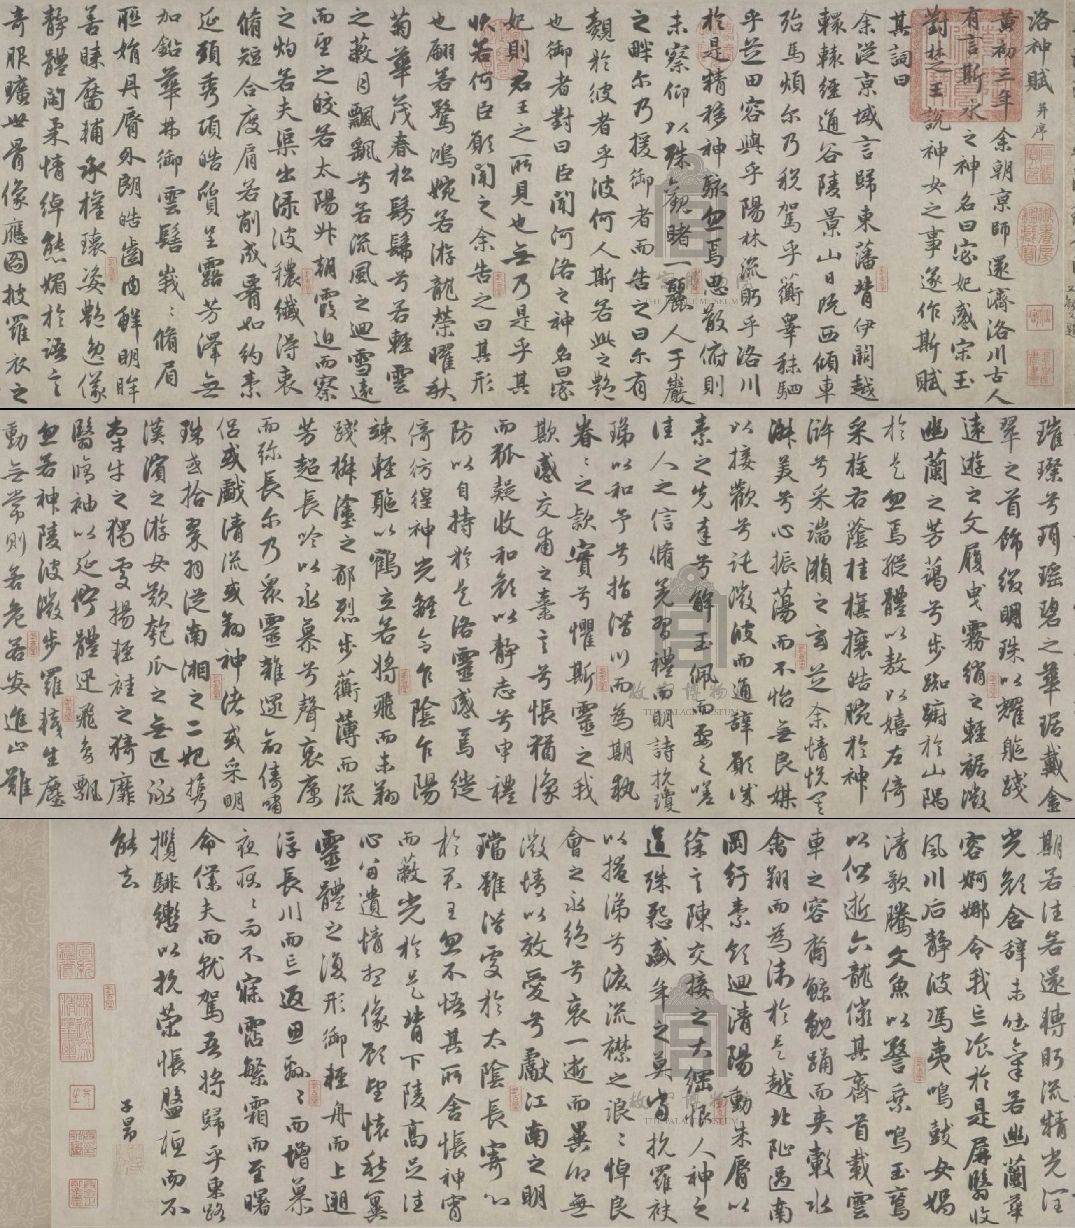 洛神賦 并序
黄初三年余朝京師還濟洛川古人
有言斯水之神名曰宓妃感宋玉
對楚王說神女之事遂作斯賦
其詞曰
余從京域言歸東藩背伊闕越
轘轅經通谷陵景山日既西傾車
殆馬煩尔乃税駕乎蘅皋秣駟
乎芝田容與乎陽林流眄乎洛川
於是精移神駭忽焉思散俯則
未察仰以殊觀睹一麗人于巖
之畔尔乃援御者而告之曰尔有
覿於彼者乎彼何人斯若此之艷
也御者對曰臣聞河洛之神名曰宓
妃則君王之所見也無乃是乎其
狀若何臣願聞之余告之曰其形
也翩若驚鴻婉若游龍榮曜秋
菊華茂春松髣髴兮若輕雲
之蔽月飄飖兮若流風之迴雪遠
而望之皎若太陽升朝霞迫而察
之灼若夫渠出渌波穠纖得衷
脩短合度肩若削成腰如約素
延頸秀項皓質呈露芳澤無
加鉛華弗御雲髻峩〻脩眉
聯娟丹脣外朗皓齒内鮮明眸
善睞靨輔承權瓌姿艷逸儀
靜體閑柔情綽態媚於語言
奇服曠世骨像應圖披羅衣之
璀璨兮珥瑶碧之華琚戴金
翠之首飾綴明珠以耀軀踐
遠遊之文履曳霧綃之輕裾微
幽蘭之芳藹兮步踟躕於山隅
於是忽焉縱體以敖以嬉左倚
采旄右蔭桂旗攘皓腕於神
滸兮采湍瀨之玄芝余情悦其
淑美兮心振蕩而不怡無良媒
以接歡兮託微波而通辭願誠
素之先達兮解玉佩而要之嗟
佳人之信脩羌習禮而明詩抗瓊
珶以和予兮指潛川而為期執
眷〻之款實兮懼斯靈之我
欺感交甫之棄言兮悵猶豫
而狐疑收和顔以靜志兮申禮
防以自持於是洛靈感焉徙
倚彷徨神光離合乍陰乍陽
竦輕軀以鶴立若將飛而未翔
踐椒塗之郁烈步蘅薄而流
芳超長吟以永慕兮聲哀厲
而弥長尔乃衆靈雜遝命儔嘯
侶或戲清流或翔神渚或采明
珠或拾翠羽從南湘之二妃携
漢濱之游女歎匏瓜之無匹詠
牽牛之獨處揚輕袿之猗靡
翳脩袖以延佇體迅飛鳧飄
忽若神陵波微步羅襪生塵
動無常則若危若安進止難
期若往若還轉眄流精光潤
玉顔含辭未吐氣若幽蘭華
容婀娜令我忘飡於是屏翳收
風川后靜波馮夷鳴鼓女媧
清歌騰文魚以警乘鳴玉鸞
以偕逝六龍儼其齊首載雲
車之容裔鯨鯢踊而夾轂水
禽翔而為衛於是越北沚過南
岡紆素領迴清陽動朱脣以
徐言陳交接之大綱恨人神之
道殊怨盛年之莫當抗羅袂
以掩涕兮淚流襟之浪〻悼良
會之永絶兮哀一逝而異鄉無
微情以效愛兮獻江南之明
璫雖潛處於太陰長寄心
於君王忽不悟其所舍悵神霄
而蔽光於是背下陵高足往
心留遺情想像顧望懷愁冀
靈體之復形御輕舟而上遡
浮長川而忘返思綿〻而增慕
夜耿〻而不寐霑繁霜而至曙
命僕夫而就駕吾將歸乎東路
攬騑轡以抗策悵盤桓而不
能去
子昂